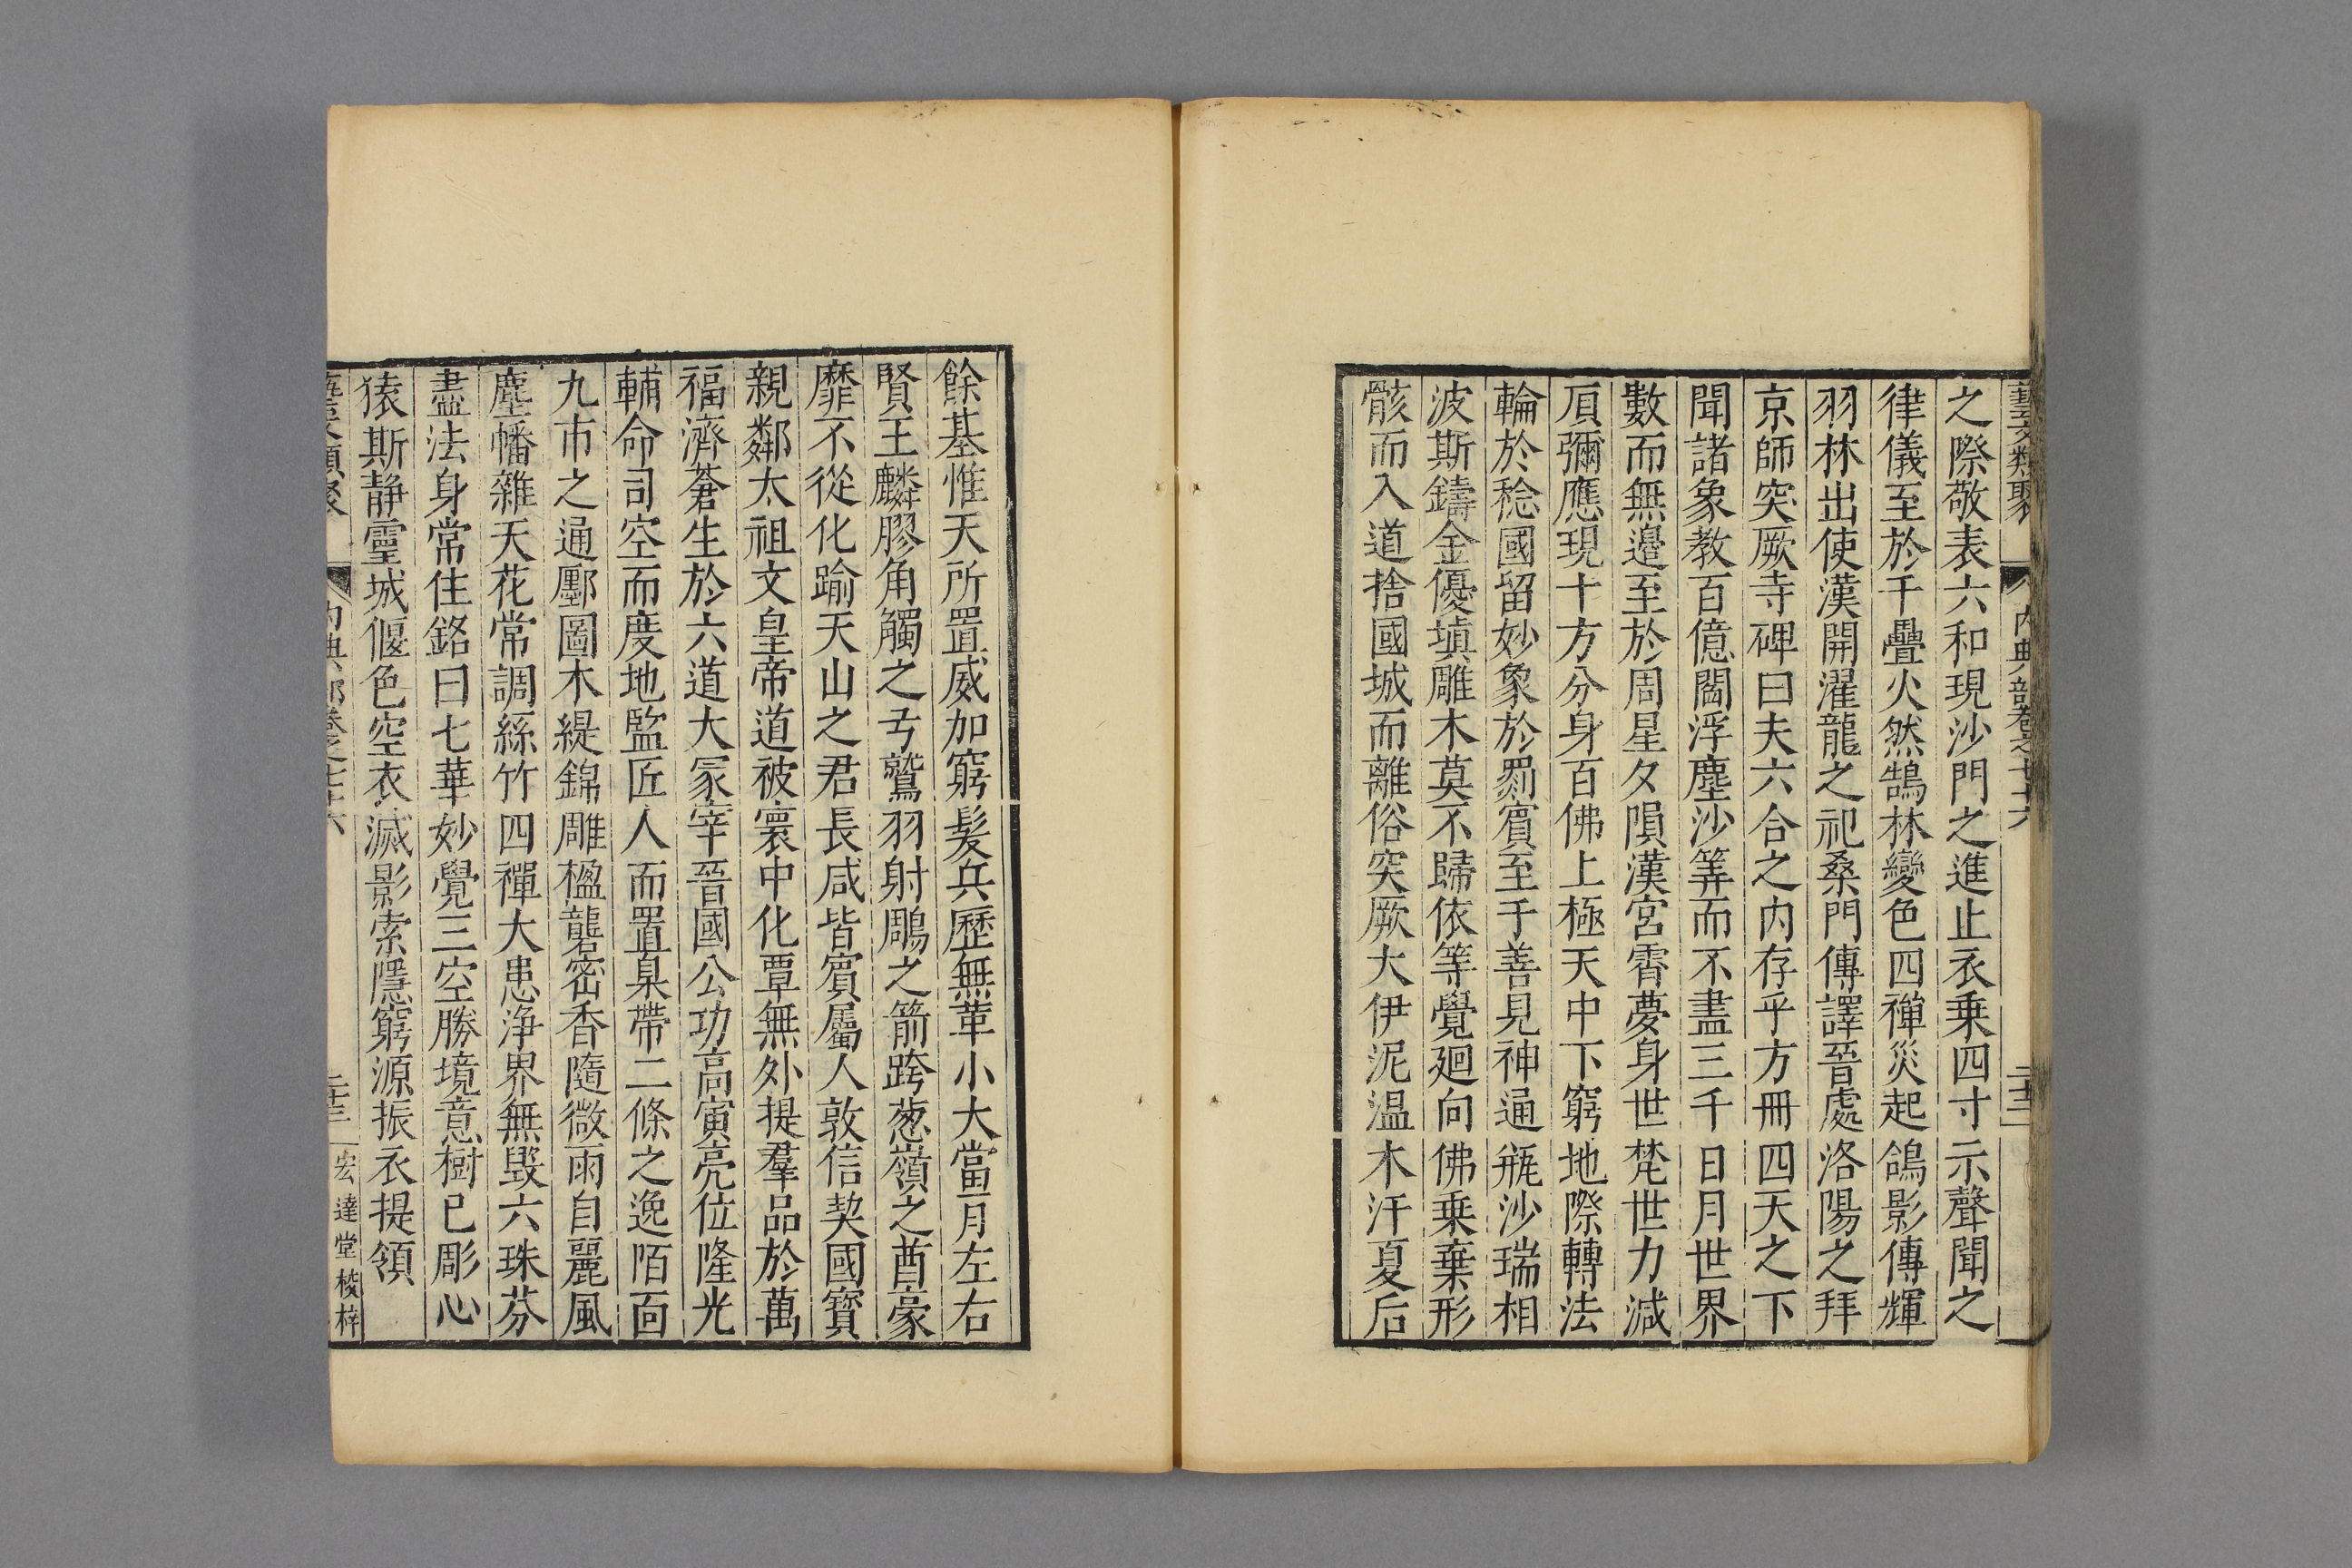 藝文類聚 內典部卷之七十六 二十二
之際敬表六和現沙門之進止衣乗四寸示聲聞之
律儀至於千疊火然鵠林變色四禪災起鴿影傳輝
羽林出使漢開濯龍之祀桑門傳譯晉處洛陽之拜
京師突厥寺碑曰夫六合之内存乎方冊四天之下
聞諸象教百億閻浮塵沙筭而不盡三千日月世界
數而無邊至於周星夕隕漢宮霄夢身世梵世力減
須彌應現十方分身百佛上極天中下窮地際轉法
輪於稔國留妙象於罽賓至于善見神通瓶沙瑞相
波斯鑄金優塡雕木莫不歸依等覺廻向佛乗棄形
骸而入道捨國城而離俗突厥大伊泥温木汗夏后
餘基惟天所置威加窮髮兵歷無革小大當月左右
賢王麟膠角觸之弓鷲羽射鵰之箭跨葱嶺之酋豪
靡不從化踰天山之君長咸皆賓屬人敦信契國寳
親鄰太祖文皇帝道被寰中化覃無外提羣品於萬
福濟蒼生於六道大冡宰晉國公功高寅亮位隆光
輔命司空而度地監匠人而置臬帶二條之逸陌面
九市之通鄽圖木緹錦雕楹礱密香隨微雨自麗風
塵幡雜天花常調絲竹四禪大患浄界無毁六珠芬
盡法身常住銘曰七華妙覺三空勝境意樹已彫心
猿斯静靈城偃色空衣滅影索隱窮源振衣提領
藝文類聚 內典部卷之七十六 二十二 宏達堂梓